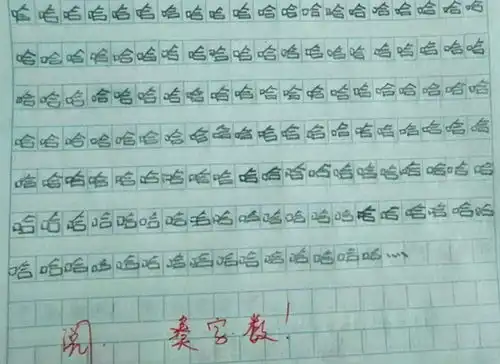 哈哈哈哈哈哈哈哈哈哈哈哈哈哈哈哈哈哈哈哈
哈哈哈哈哈哈哈哈哈哈哈哈哈哈哈哈哈哈哈哈
哈哈哈哈哈哈哈哈哈哈哈哈哈哈哈哈哈哈哈哈
哈哈哈哈哈哈哈哈哈哈哈哈哈哈哈哈哈哈哈哈
哈哈哈哈哈哈哈哈哈哈哈哈哈哈哈哈哈哈哈哈
哈哈哈哈哈哈哈哈哈哈哈哈哈哈哈哈哈哈哈哈
哈哈哈哈哈哈哈哈哈哈哈哈哈哈哈……
阅. 凑字数！